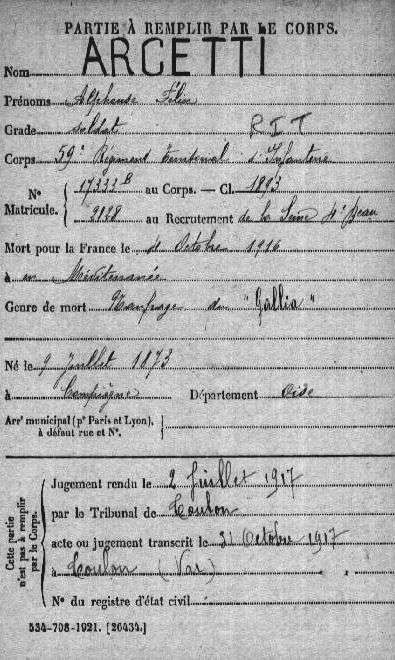 PARTIE À REMPLIR PAR LE CORPS.
Nom ARCETTI
Prénoms Alphonse Félix
Grade Soldat R I T
Corps 59e Régiment Territorial d'Infanterie
N° Matricule. { 17333 B au Corps. — Cl. 1893
2128 au Recrutement de la Seine 4e Beau
Mort pour la France le 4 Octobre 1916
à en Méditerranée
Genre de mort Naufrage du "Gallia"
Né le 9 Juillet 1873
à Compiègne Département Oise
Arrt municipal (pr Paris et Lyon), à défaut rue et N°.
Cette partie n'est pas à remplir par le Corps.
Jugement rendu le 2 Juillet 1917
par le Tribunal de Toulon
acte ou jugement transcrit le 31 Octobre 1917
à Toulon (Var)
N° du registre d'état civil
534-708-1921. [26434.]